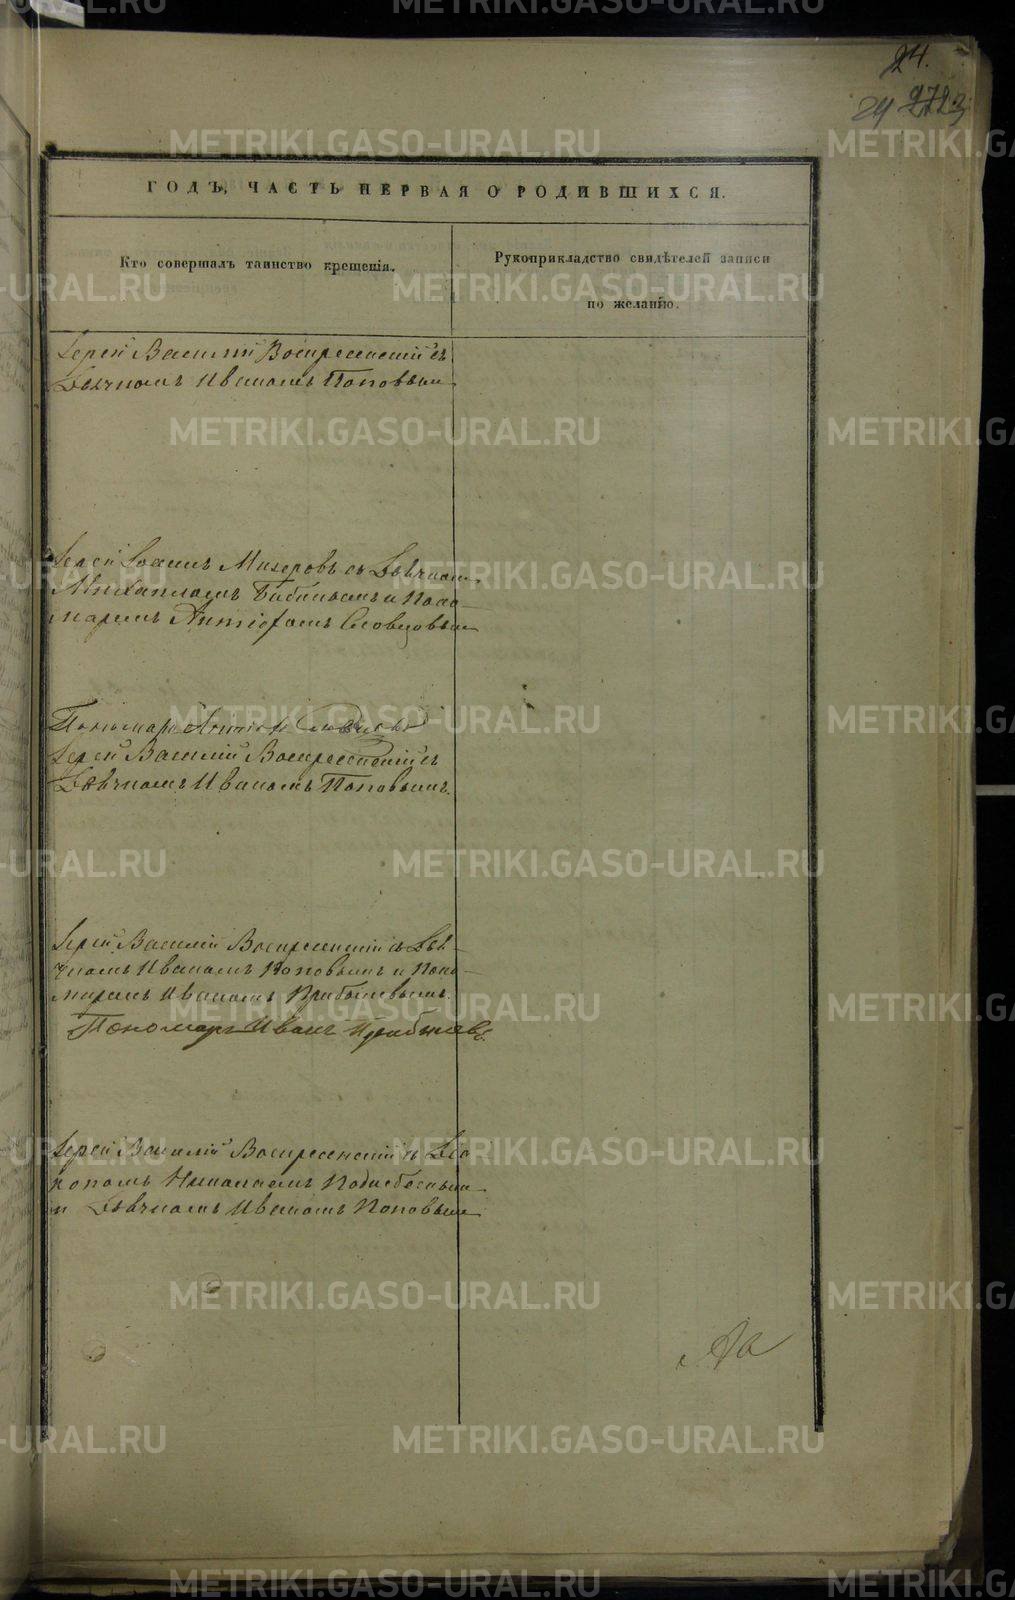 24.
ГОДЪ, ЧАСТЬ ПЕРВАЯ О РОДИВШИХСЯ.
Кто совершалъ таинство крещенія.
Рукоприкладство свидѣтелей записи
по желанію.
Іерей Василій Воскресенскій съ
Дьячкомъ Иваномъ Поповымъ
Іерей Іоаннъ Мизеровъ съ Дьячкомъ
Михаиломъ Бабинымъ и Поно-
маремъ Антіофомъ Словцовымъ
Пономарь
Іерей Василій Воскресенскій съ
Дьячкомъ Иваномъ Поповымъ.
Іерей Василій Воскресенскій съ Дья-
чкомъ Иваномъ Поповымъ и Поно-
маремъ Иваномъ
Пономарь Иванъ
Іерей Василій Воскресенскій съ Діа
кономъ Николаемъ
и Дьячкомъ Иваномъ Поповымъ
METRIKI.GASO-URAL.RU